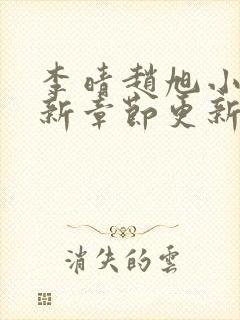 李晴趙旭小
新章節更新
消失的雲